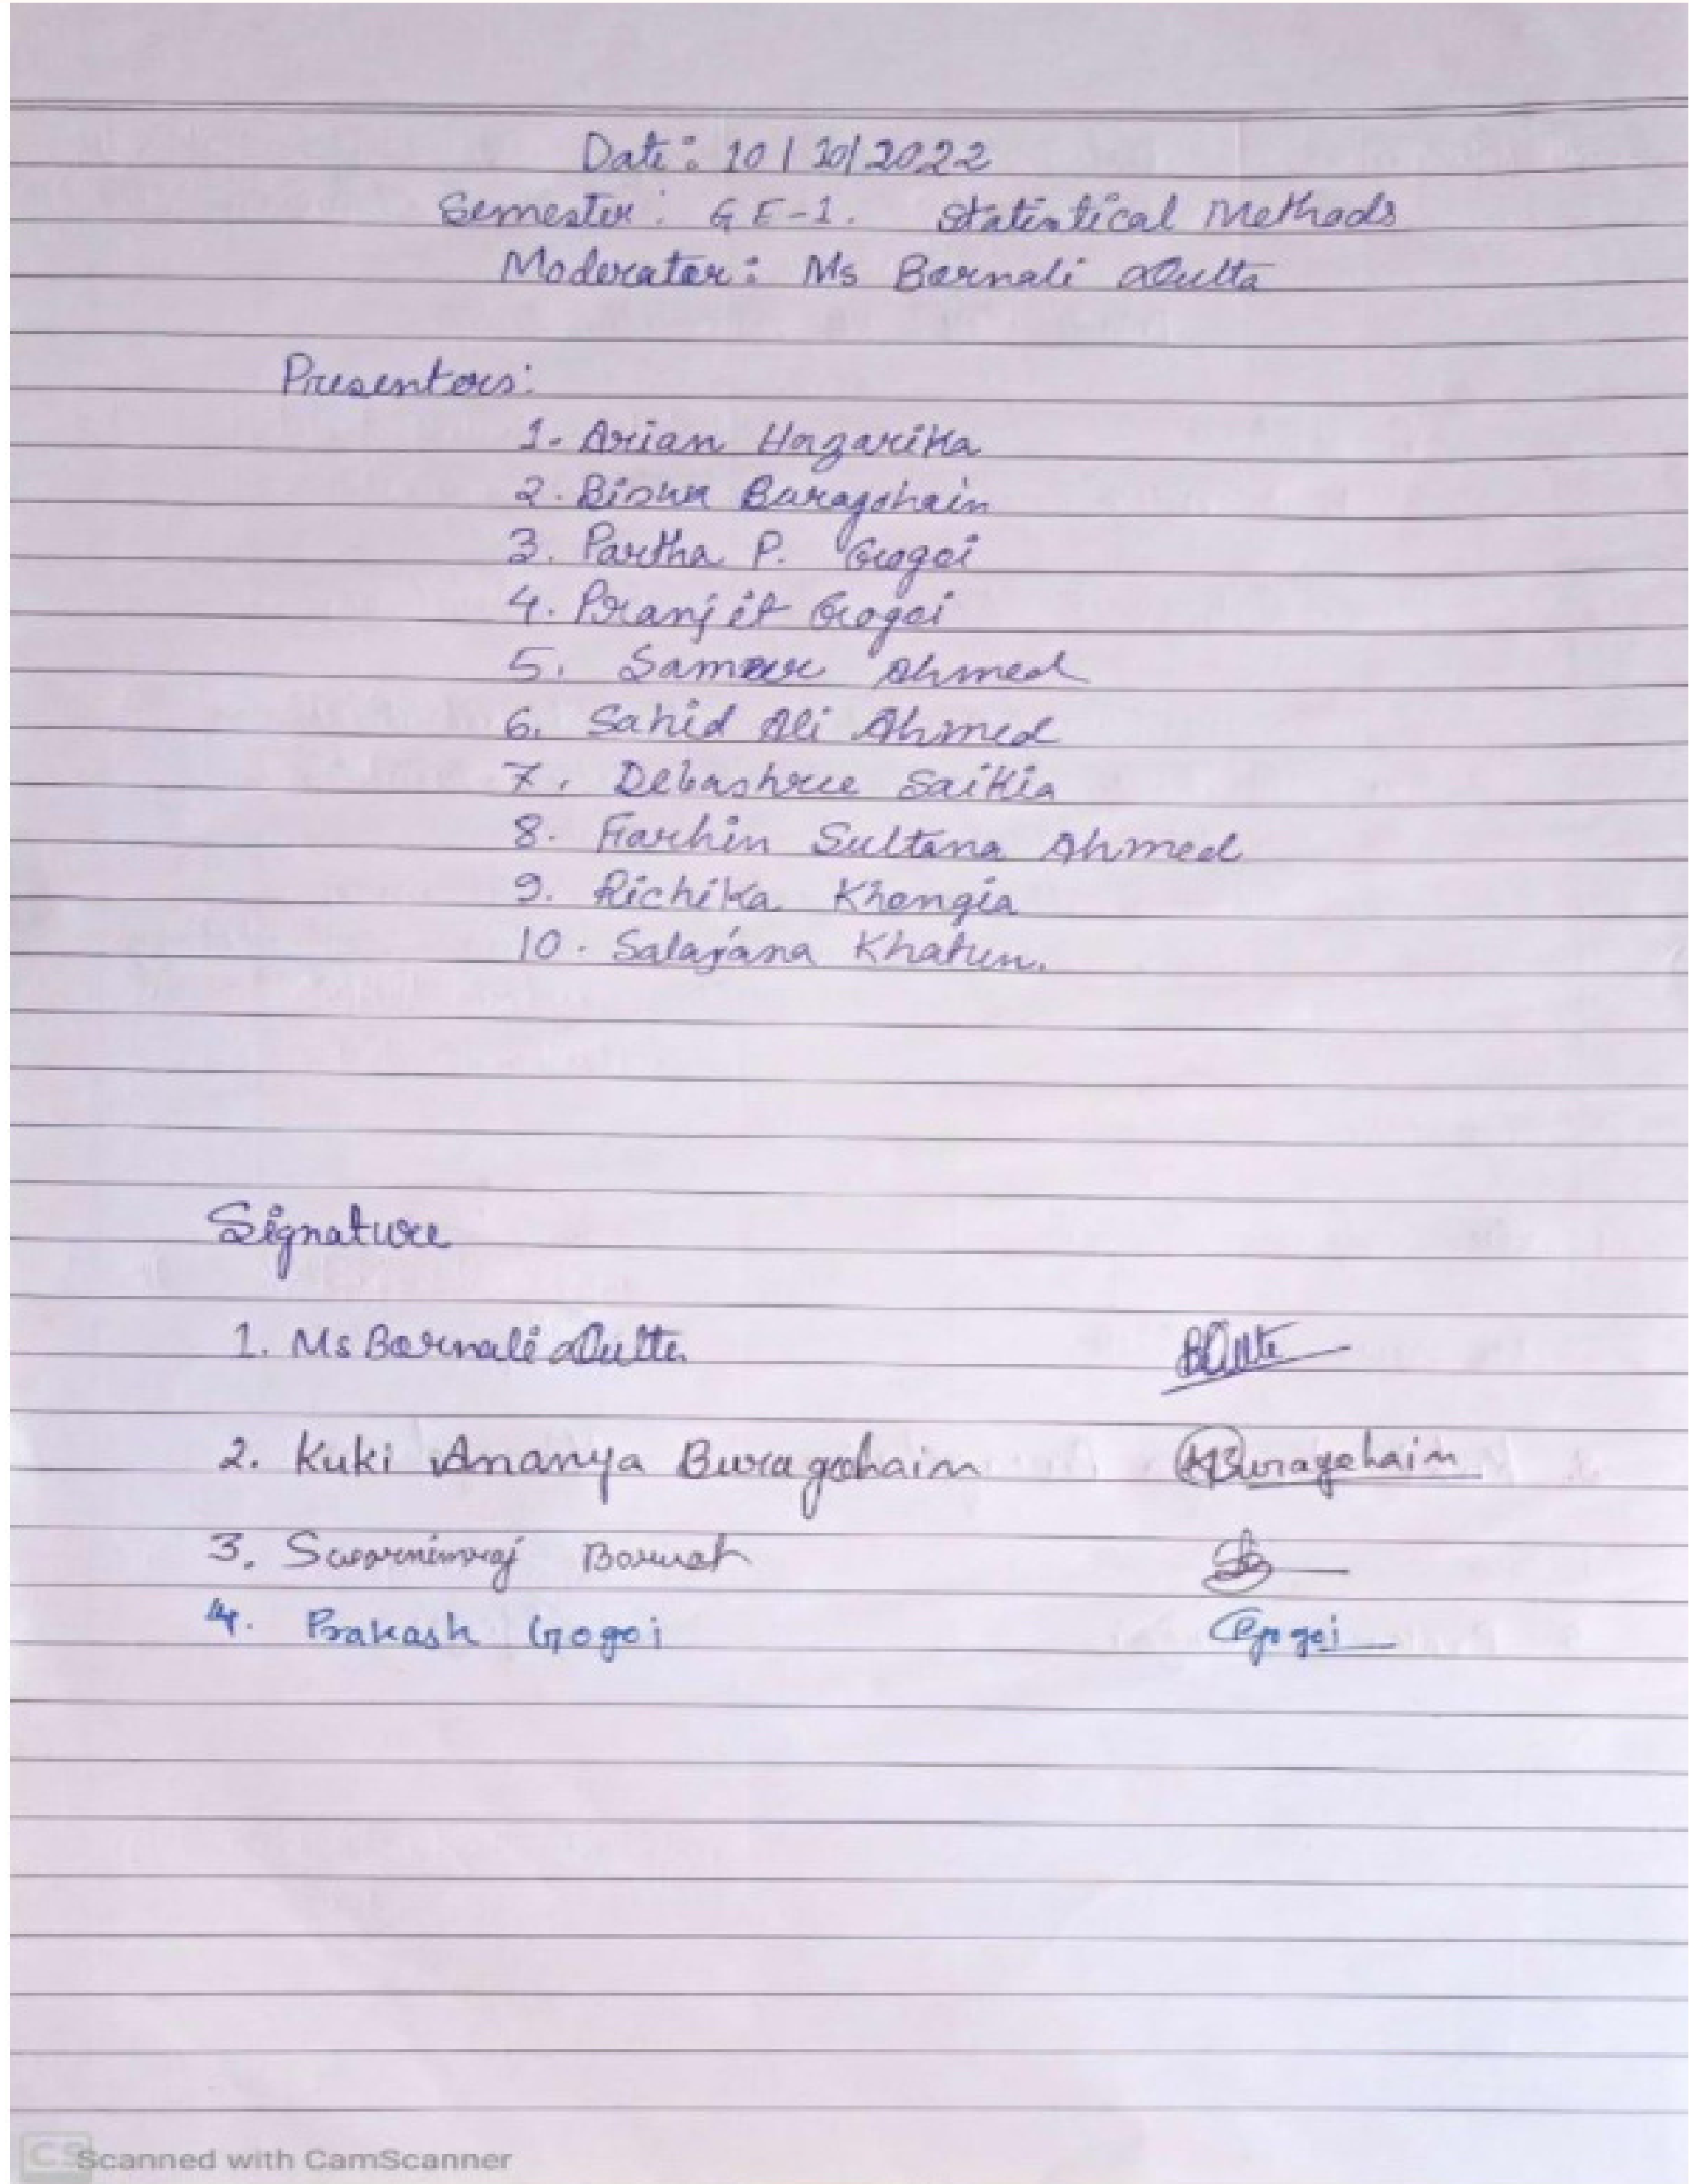 Date: 10/10/2022
Semester: GE-1. Statistical Methods
Moderator: Ms Barnali Dutta
Presentors:
1. Arian Hazarika
2. Biswa Buragohain
3. Partha P. Gogoi
4. Pranjit Gogoi
5. Sameer Ahmed
6. Sahid Ali Ahmed
7. Debashree Saikia
8. Farhin Sultana Ahmed
9. Richika Khongia
10. Khatun.
Signature
1. Ms Barnali Dutta BDutta
2. Kuki Ananya Buragohain Buragohain
3. Swarnimraj Boruah
4. Prakash Gogoi PGogoi
CS Scanned with CamScanner